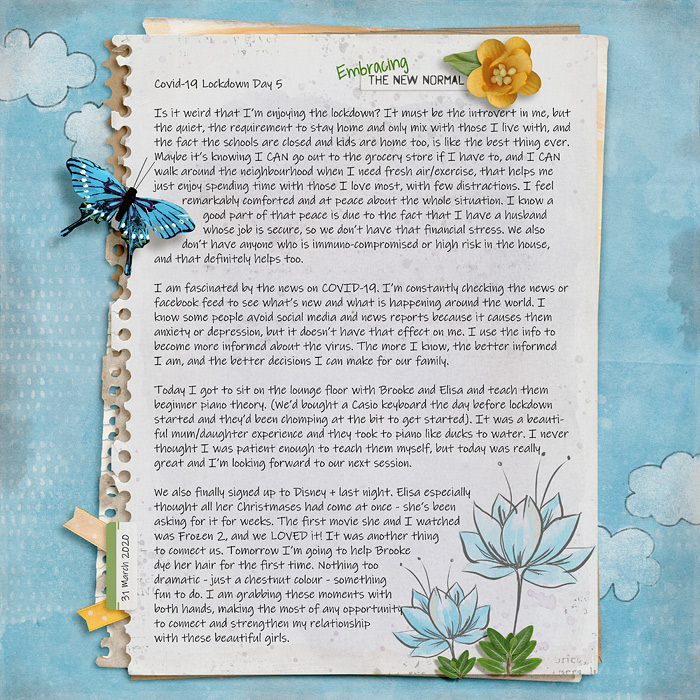 Embracing
THE NEW NORMAL
Covid-19 Lockdown Day 5
Is it weird that I'm enjoying the lockdown? It must be the introvert in me, but
the quiet, the requirement to stay home and only mix with those I live with, and
the fact the schools are closed and kids are home too, is like the best thing ever.
Maybe it's knowing I CAN go out to the grocery store if I have to, and I CAN
walk around the neighbourhood when I need fresh air/exercise, that helps me
just enjoy spending time with those I love most, with few distractions. I feel
remarkably comforted and at peace about the whole situation. I know a
good part of that peace is due to the fact that I have a husband
whose job is secure, so we don't have that financial stress. We also
don't have anyone who is immuno-compromised or high risk in the house,
and that definitely helps too.
I am fascinated by the news on COVID-19. I'm constantly checking the news or
facebook feed to see what's new and what is happening around the world. I
know some people avoid social media and news reports because it causes them
anxiety or depression, but it doesn't have that effect on me. I use the info to
become more informed about the virus. The more I know, the better informed
I am, and the better decisions I can make for our family.
Today I got to sit on the lounge floor with Brooke and Elisa and teach them
beginner piano theory. (We'd bought a Casio keyboard the day before lockdown
started and they'd been chomping at the bit to get started). It was a beauti-
ful mum/daughter experience and they took to piano like ducks to water. I never
thought I was patient enough to teach them myself, but today was really
great and I'm looking forward to our next session.
We also finally signed up to Disney + last night. Elisa especially
thought all her Christmases had come at once - she's been
asking for it for weeks. The first movie she and I watched
was Frozen 2, and we LOVED it! It was another thing
to connect us. Tomorrow I'm going to help Brooke
dye her hair for the first time. Nothing too
dramatic - just a chestnut colour - something
fun to do. I am grabbing these moments with
both hands, making the most of any opportunity
to connect and strengthen my relationship
with these beautiful girls.
31 March 2020